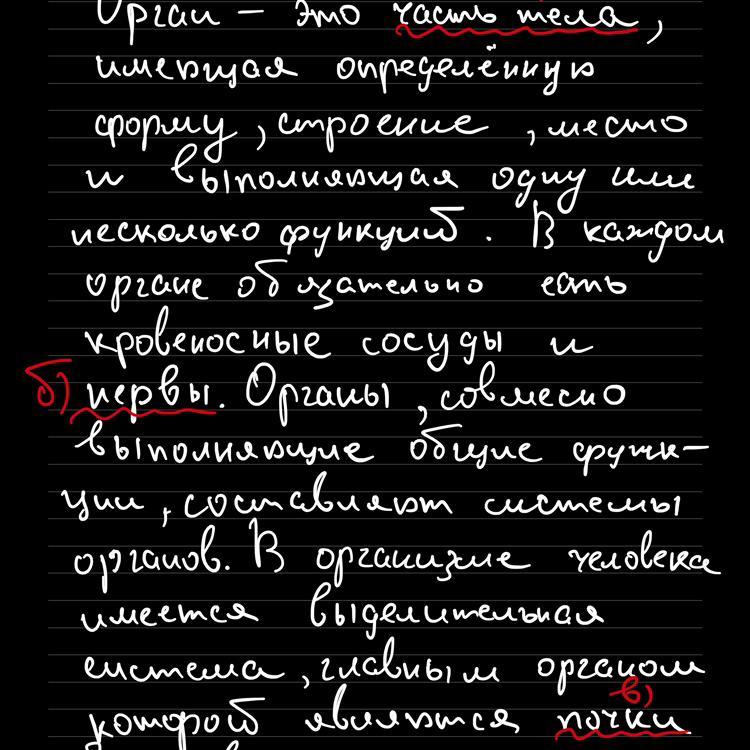 Орган – это часть тела,
имеющая определённую
форму, строение, место
и выполняющая одну или
несколько функций. В каждом
органе обязательно есть
кровеносные сосуды и
б) нервы. Органы, совместно
выполняющие общие функ-
ции, составляют системы
органов. В организме человека
имеется выделительная
система, главным органом
в)
которой являются почки